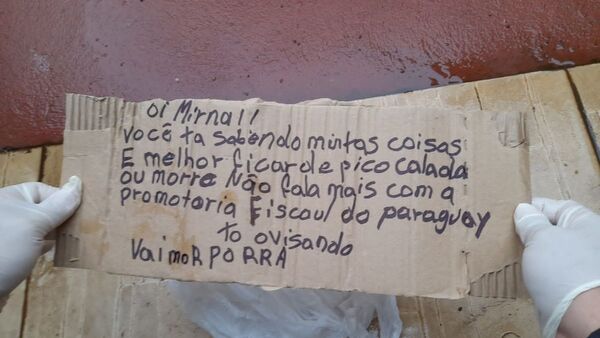 oi Mirna!!
você ta sabendo muintas coisas
E melhor ficar de pico calada
ou morre Não fala mais com a
promotoria Fiscoul do paraguay
to ovisando
Vai moR PORRA